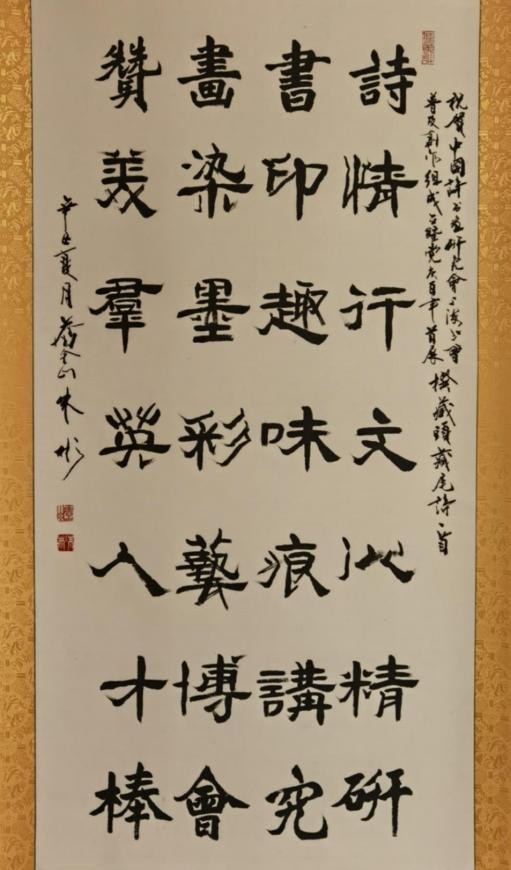 祝賀中國詩书畫研究會上海分會
普及創作組成立暨党庆百年首展 撰藏頭藏尾詩一首
詩情行文沁精研
書印趣味痕講究
畫染墨彩藝博會
贊美羣英人才棒
辛丑夏月 山朱彬